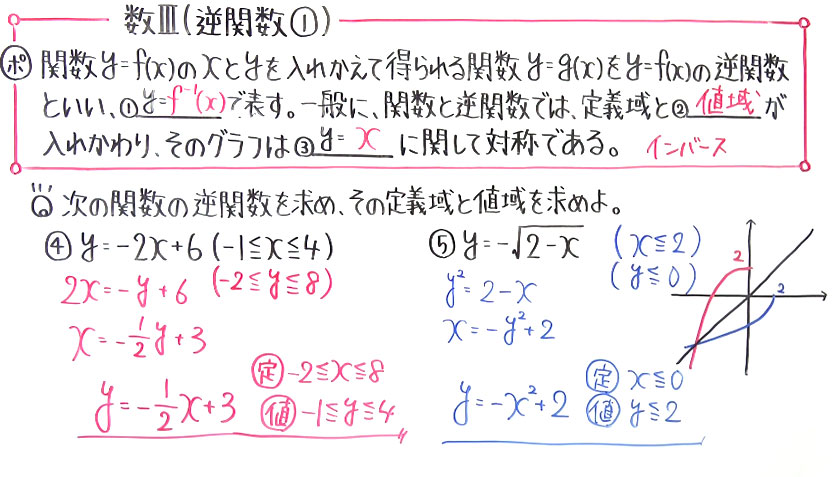 数Ⅲ(逆関数①)
ポ 関数y=f(x)のxとyを入れかえて得られる関数y=g(x)をy=f(x)の逆関数
といい、①y=f⁻¹(x)で表す。一般に、関数と逆関数では、定義域と②値域が
入れかわり、そのグラフは③y=xに関して対称である。 インバース
Q 次の関数の逆関数を求め、その定義域と値域を求めよ。
④ y=-2x+6 (-1≦x≦4)
2x=-y+6 (-2≦y≦8)
x=-1/2y+3
定 -2≦x≦8
y=-1/2x+3 値 -1≦y≦4
⑤ y=-√2-x (x≦2)
(y≦0)
y²=2-x
x=-y²+2
定 x≦0
y=-x²+2 値 y≦2
2
2